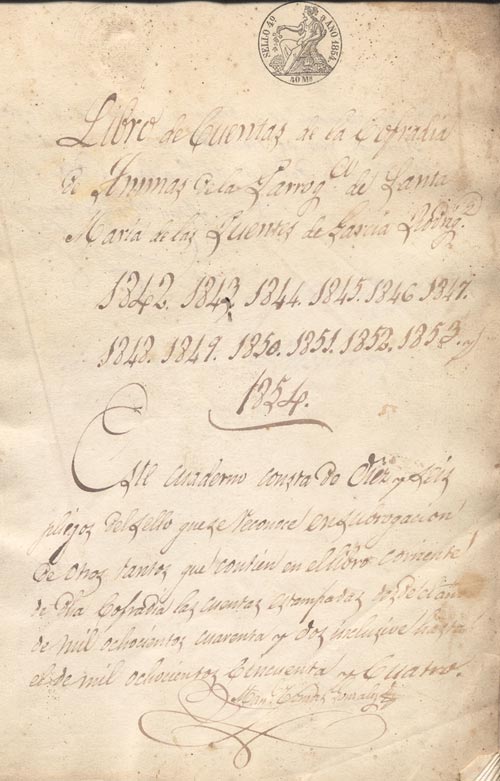 SELLO 4º AÑO 1854.
40 Ms
Libro de Cuentas de la Cofradia
de Animas de la Parroqª de Santa
Maria de las Fuentes de Garcia
1842. 1843, 1844. 1845. 1846 1847.
1848. 1849. 1850. 1851. 1852. 1853. y
1854.
Este cuaderno consta de Diez y seis
pliegos del sello que se reconoce en subrogacion
de otros tantos que contien en el libro corriente
de Dha Cofradia las cuentas estampadas desde el año
de mil ochocientos cuarenta y dos inclusive hasta
el de mil ochocientos Cincuenta y Cuatro.